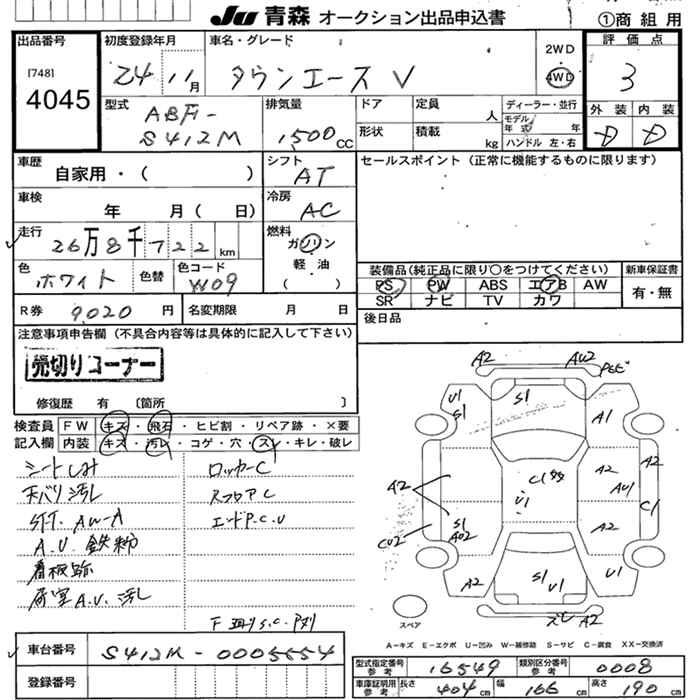 JU 青森 オークション出品申込書
①商組用
出品番号
[748]
4045
初度登録年月
24 11月
車名・グレード
タウンエース V
2WD
4WD
評価点
3
外装 内装
D D
型式
ABF-
S412M
排気量
1500cc
ドア
定員
人
形状
積載
kg
ディーラー・並行
モデル
年式 年
ハンドル 左・右
車歴
自家用・( )
シフト
AT
セールスポイント(正常に機能するものに限ります)
車検
年 月( 日)
冷房
AC
走行
26万8千722km
燃料
ガソリン
軽・油
( )
色
ホワイト
色替
色コード
W09
装備品(純正品に限り○をつけてください)
新車保証書
PS PW ABS エアB AW
SR ナビ TV カワ
有・無
R券
9020円
名変期限 月 日
後日品
注意事項申告欄(不具合内容等は具体的に記入して下さい)
売切りコーナー
修復歴 有 [箇所 ]
検査員
記入欄
FW キズ・飛石・ヒビ割・リペア跡・×要
内装 キズ・汚レ・コゲ・穴・スレ・キレ・破レ
シートしみ
天バリ汚レ
ロッカーC
RフロアC
エンドP.C.U
A.U.鉄粉
看板跡
荷室A.U.汚レ
A2
AU2
U1
S1
S1
A1
A2
C1
U1
A2
A2
AU1
C1
S1
AU2
CU2
A2
A2
S1
U1
U1
A2
スペア
A=キズ E=エクボ U=凹み W=補修跡 S=サビ C=腐食 XX=交換済
車台番号
S412M-0005554
登録番号
型式指定番号
参考
16549
類別区分番号
参考
0008
車庫証明用
参考
長さ
404cm
幅
166cm
高さ
190cm